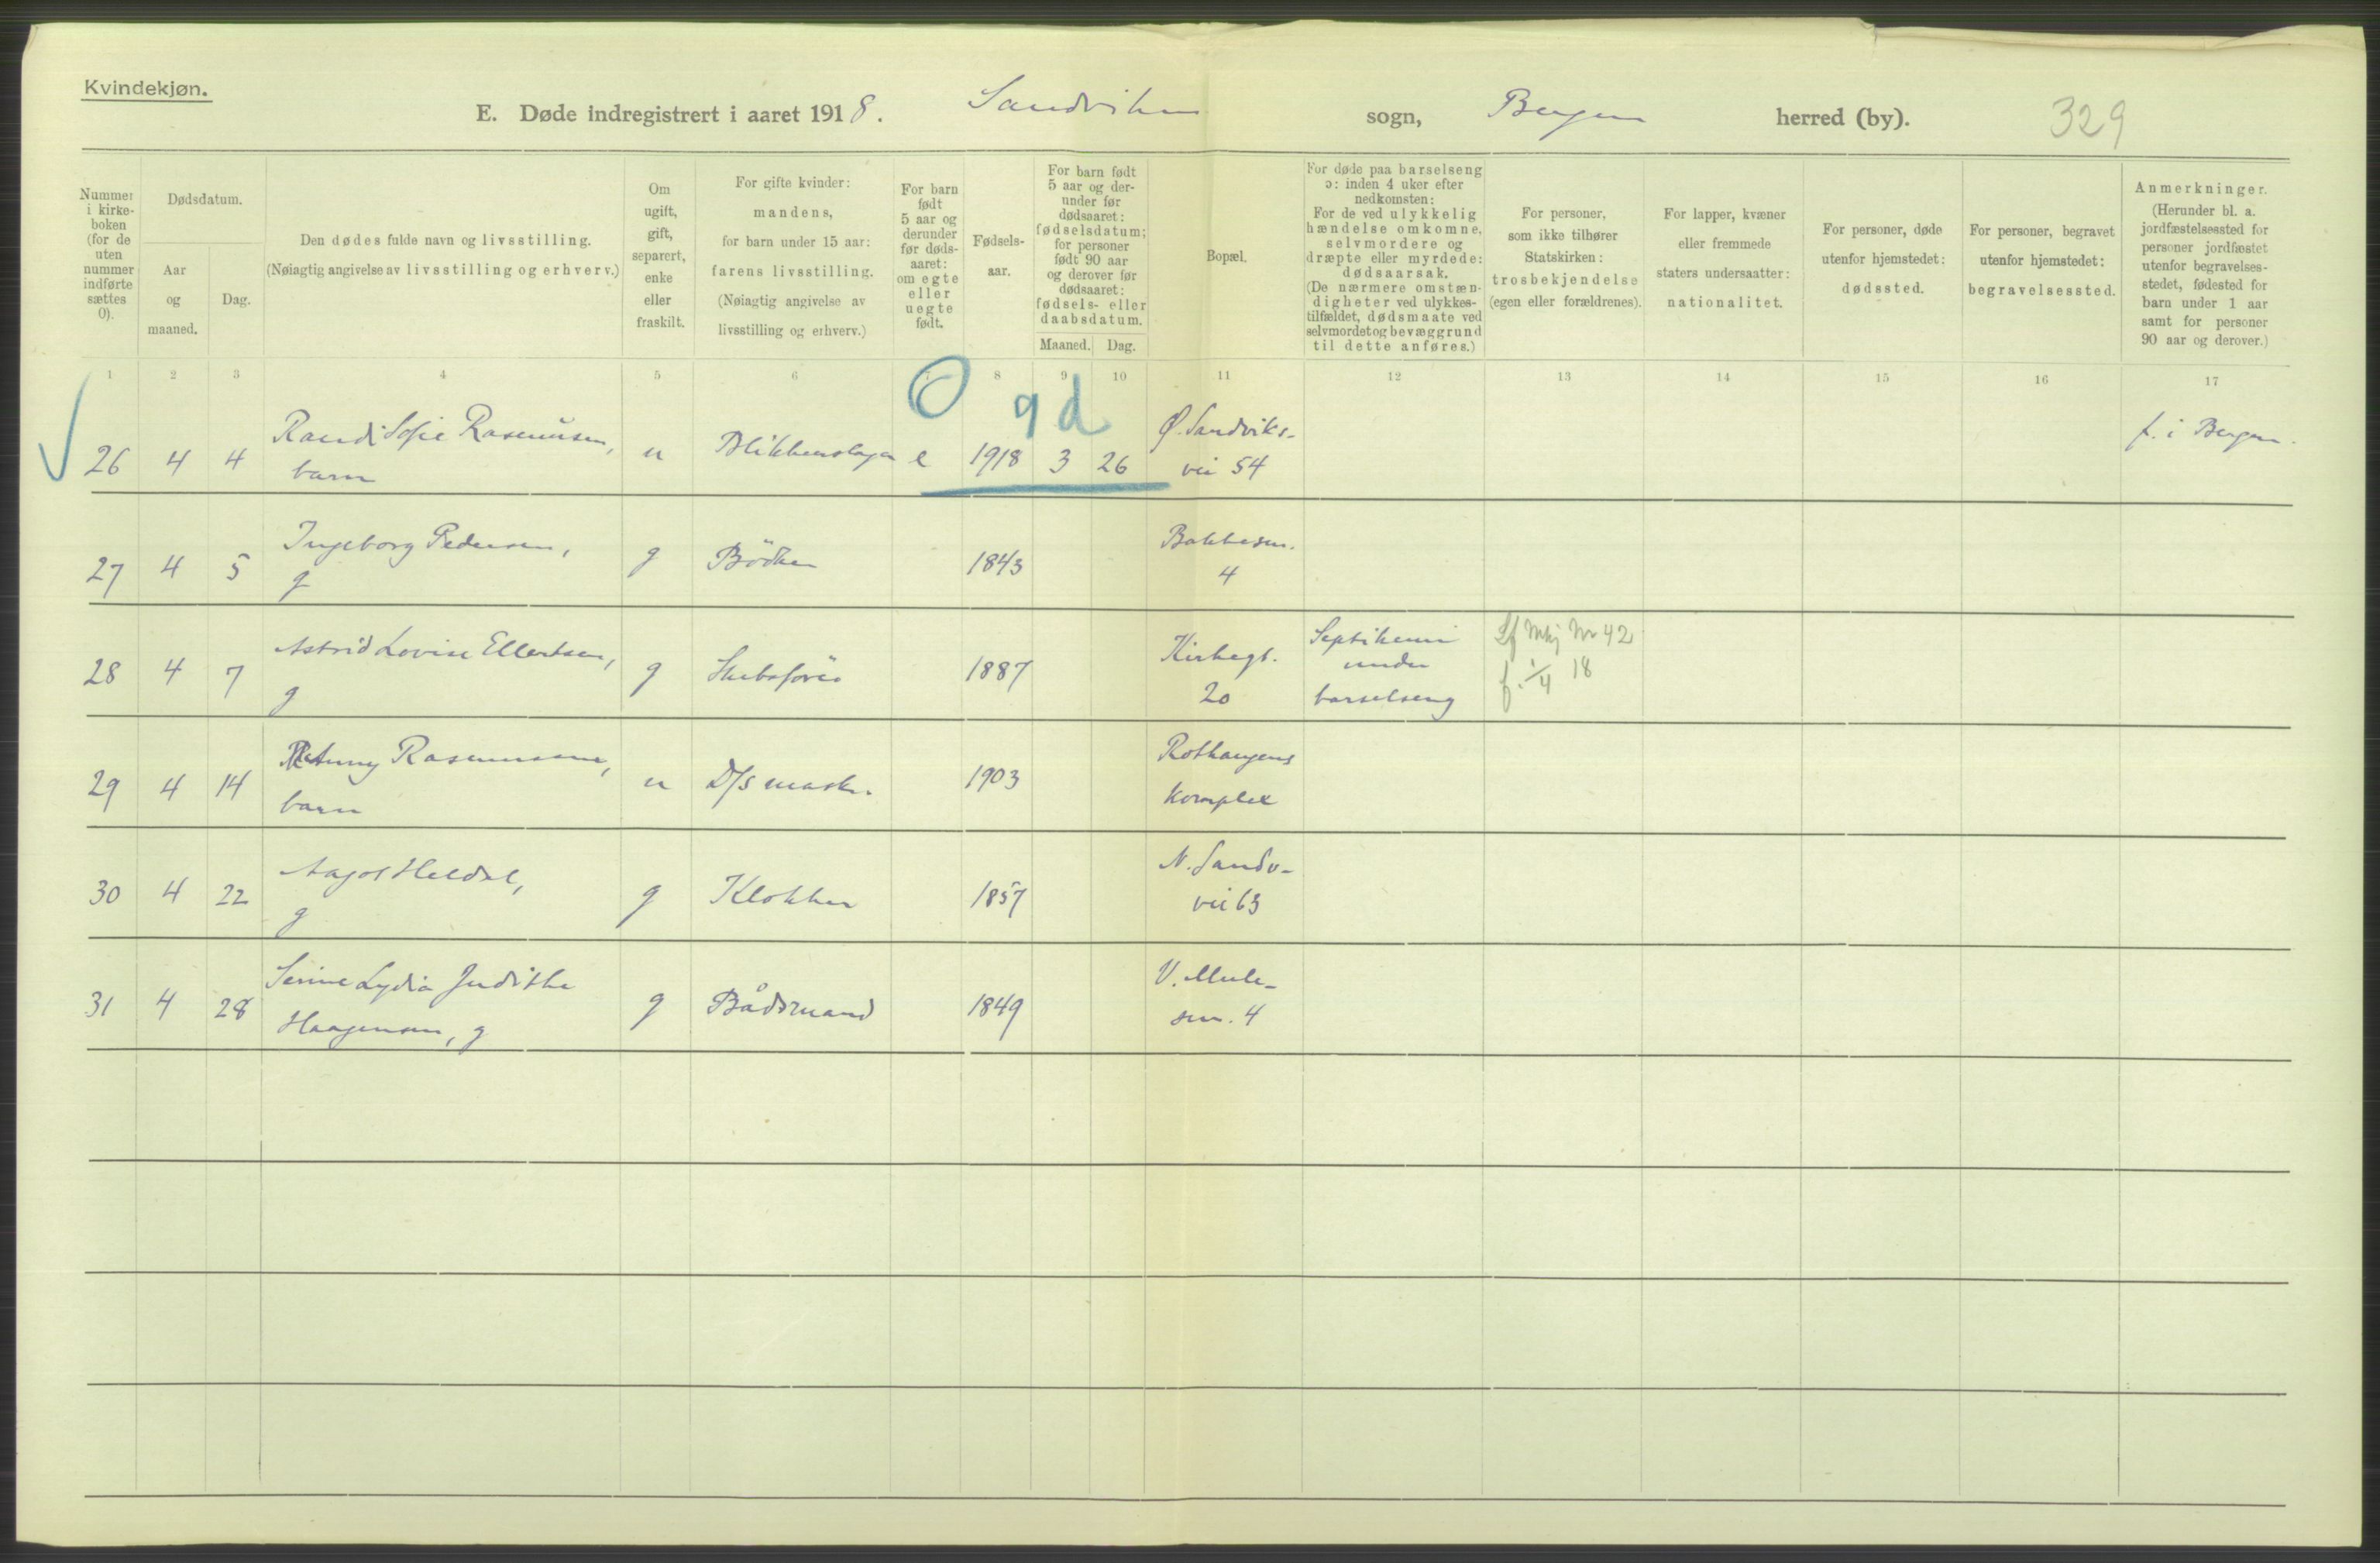 Kvindekjøn.
E. Døde indregistrert i aaret 1918. Sandviken sogn, Bergen herred (by). 329
Nummer i kirke-boken (for de uten nummer indførte sættes 0).
Dødsdatum.
Aar og maaned.
Dag.
Den dødes fulde navn og livsstilling.
(Nøiagtig angivelse av livsstilling og erhverv.)
Om ugift, gift, separert, enke eller fraskilt.
For gifte kvinder: mandens, for barn under 15 aar: farens livsstilling. (Nøiagtig angivelse av livsstilling og erhverv.)
For barn født 5 aar og derunder før døds-aaret: om egte eller uegte født.
Fødsels-aar.
For barn født 5 aar og der-under før dødsaaret: fødselsdatum; for personer født 90 aar og derover før dødsaaret: fødsels- eller daabsdatum.
Maaned. Dag.
Bopæl.
For døde paa barselseng ɔ: inden 4 uker efter nedkomsten: For de ved ulykkelig hændelse omkomne, selvmordere og dræpte eller myrdede: dødsaarsak. (De nærmere omstæn-digheter ved ulykkes-tilfældet, dødsmaate ved selvmordet og bevæggrund til dette anføres.)
For personer, som ikke tilhører Statskirken: trosbekjendelse (egen eller forældrenes).
For lapper, kvæner eller fremmede staters undersaatter: nationalitet.
For personer, døde utenfor hjemstedet: dødssted.
For personer, begravet utenfor hjemstedet: begravelsessted.
Anmerkninger. (Herunder bl. a. jordfæstelsessted for personer jordfæstet utenfor begravelses-stedet, fødested for barn under 1 aar samt for personer 90 aar og derover.)
1 2 3 4 5 6 7 8 9 10 11 12 13 14 15 16 17
9 d
26 4 4 Randi Sofie Rasmussen, barn u Blikkenslager e 1918 3 26 Ø. Sandviks-vei 54 f. i Bergen.
27 4 5 Ingeborg Pedersen, g g Bödker 1843 Bakkesm. 4
28 4 7 Astrid Lovise Ellertsen, g g Skibsförer 1887 Kirkegt. 20 Septikemi under barselseng Lf Mkj Nr 42 f. 1/4 18
29 4 14 Anny Rasmussen, barn u D/s mask. 1903 Rothaugens komplex
30 4 22 Aagot Heldal, g g Klokker 1857 N. Sandv-vei 63
31 4 28 Serine Lydia Judithe Haagensen, g g Bådsmand 1849 V. Mule-sm. 4